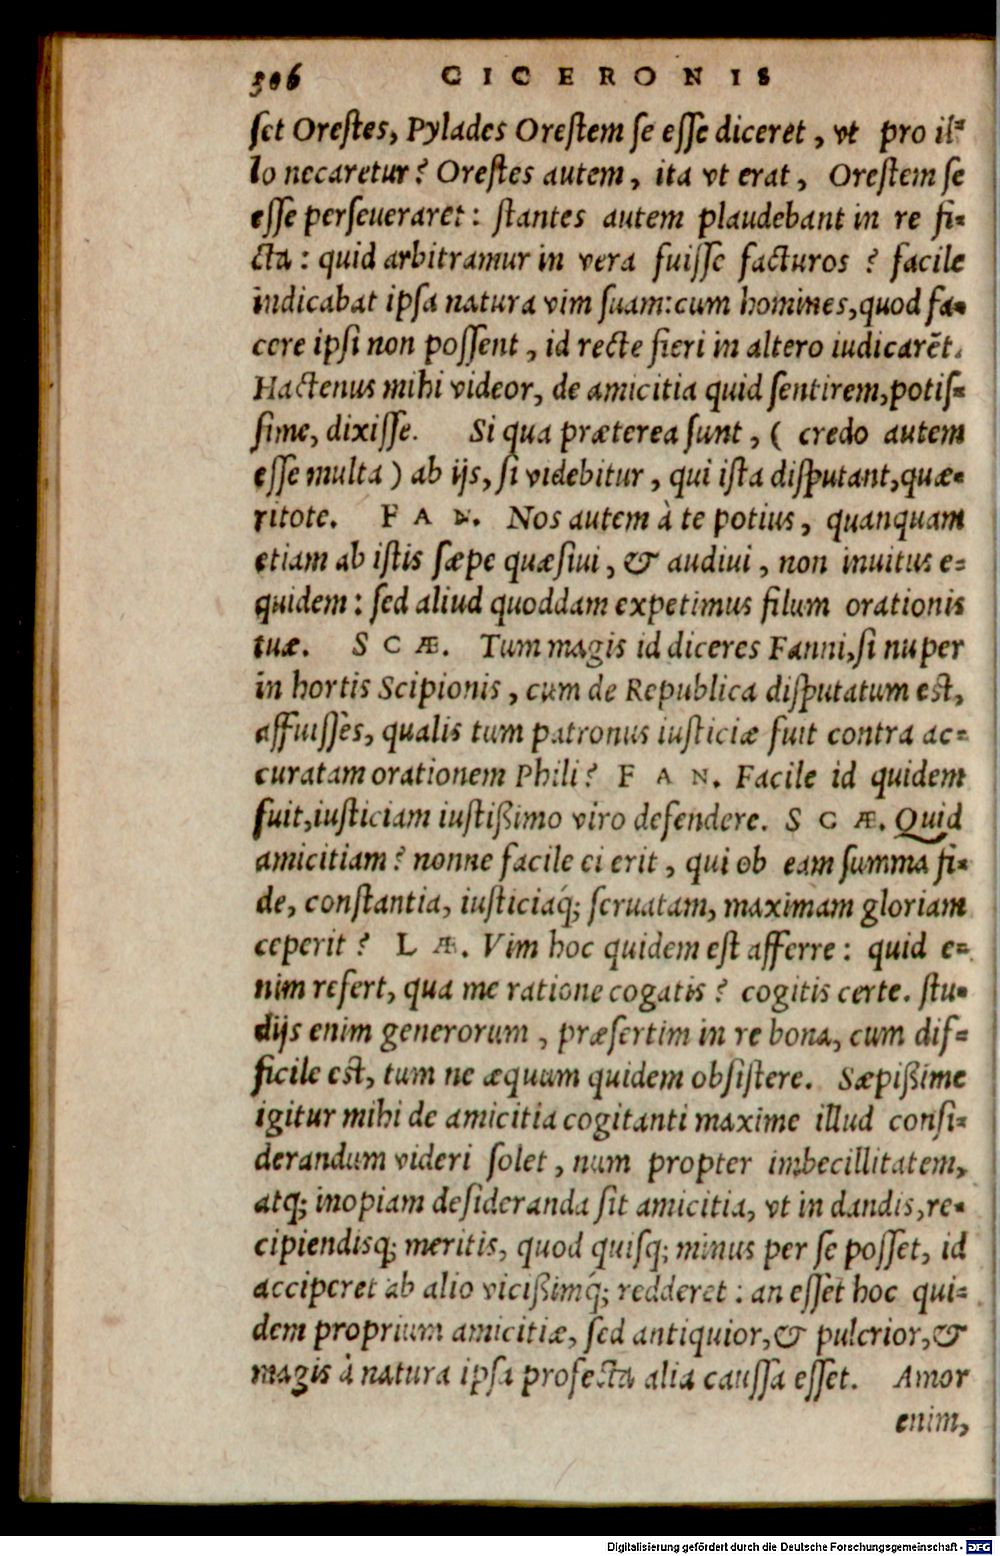 306 CICERONIS
ſet Oreſtes, Pylades Oreſtem ſe eſſe diceret, vt pro il-
lo necaretur? Oreſtes autem, ita vt erat, Oreſtem ſe
eſſe perſeueraret: ſtantes autem plaudebant in re fi-
cta: quid arbitramur in vera fuiſſe facturos? facile
indicabat ipſa natura vim ſuam: cum homines, quod fa-
cere ipſi non poſſent, id recte fieri in altero iudicarẽt.
Hactenus mihi videor, de amicitia quid ſentirem, potiſ-
ſime, dixiſſe. Si qua præterea ſunt, ( credo autem
eſſe multa ) ab ijs, ſi videbitur, qui iſta diſputant, quæ-
ritote. FAN. Nos autem à te potius, quanquam
etiam ab iſtis ſæpe quæſiui, & audiui, non inuitus e-
quidem: ſed aliud quoddam expetimus filum orationis
tuæ. SCÆ. Tum magis id diceres Fanni, ſi nuper
in hortis Scipionis, cum de Republica diſputatum eſt,
affuiſſes, qualis tum patronus iuſticiæ fuit contra ac-
curatam orationem Phili? FAN. Facile id quidem
fuit, iuſticiam iuſtißimo viro defendere. SCÆ. Quid
amicitiam? nonne facile ei erit, qui ob eam ſumma fi-
de, conſtantia, iuſticiaq́; ſeruatam, maximam gloriam
ceperit? LÆ. Vim hoc quidem eſt afferre: quid e-
nim refert, qua me ratione cogatis? cogitis certe. ſtu-
dijs enim generorum, præſertim in re bona, cum dif-
ficile eſt, tum ne æquum quidem obſiſtere. Sæpißime
igitur mihi de amicitia cogitanti maxime illud conſi-
derandum videri ſolet, num propter imbecillitatem,
atq; inopiam deſideranda ſit amicitia, vt in dandis, re-
cipiendisq; meritis, quod quiſq; minus per ſe poſſet, id
acciperet ab alio vicißimq́; redderet: an eſſet hoc qui-
dem proprium amicitiæ, ſed antiquior, & pulcrior, &
magis à natura ipſa profecta alia cauſſa eſſet. Amor
enim,
Digitalisierung gefördert durch die Deutsche Forschungsgemeinschaft - DFG